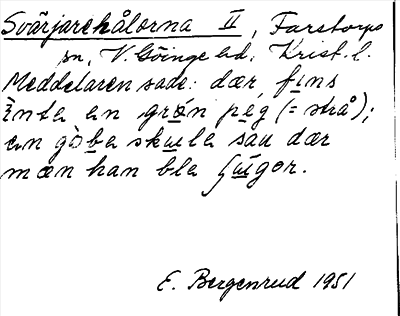 Svärjarehålorna II, Farstorps
sn, V. Göinge hd, Krist. l.
Meddelaren sade: dær fins
inte en grøn peg (= strå);
en göbe skulle sau dær
mæn han ble sugor.
E. Bergenrud 1951